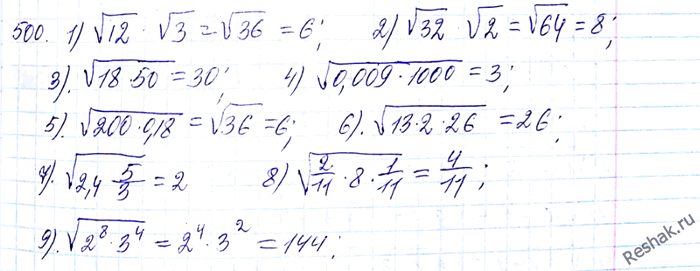 500. 1) √12 · √3 = √36 = 6; 2) √32 · √2 = √64 = 8;
3). √(18 50) = 30; 4) √(0,009 · 1000) = 3;
5). √(200 · 0,18) = √36 = 6; 6). √(13 · 2 · 26) = 26;
7). √(2,4 · 5/3) = 2 8) √(2/11 · 8 · 1/11) = 4/11;
9). √(2⁸ · 3⁴) = 2⁴ · 3² = 144;
Reshak.ru